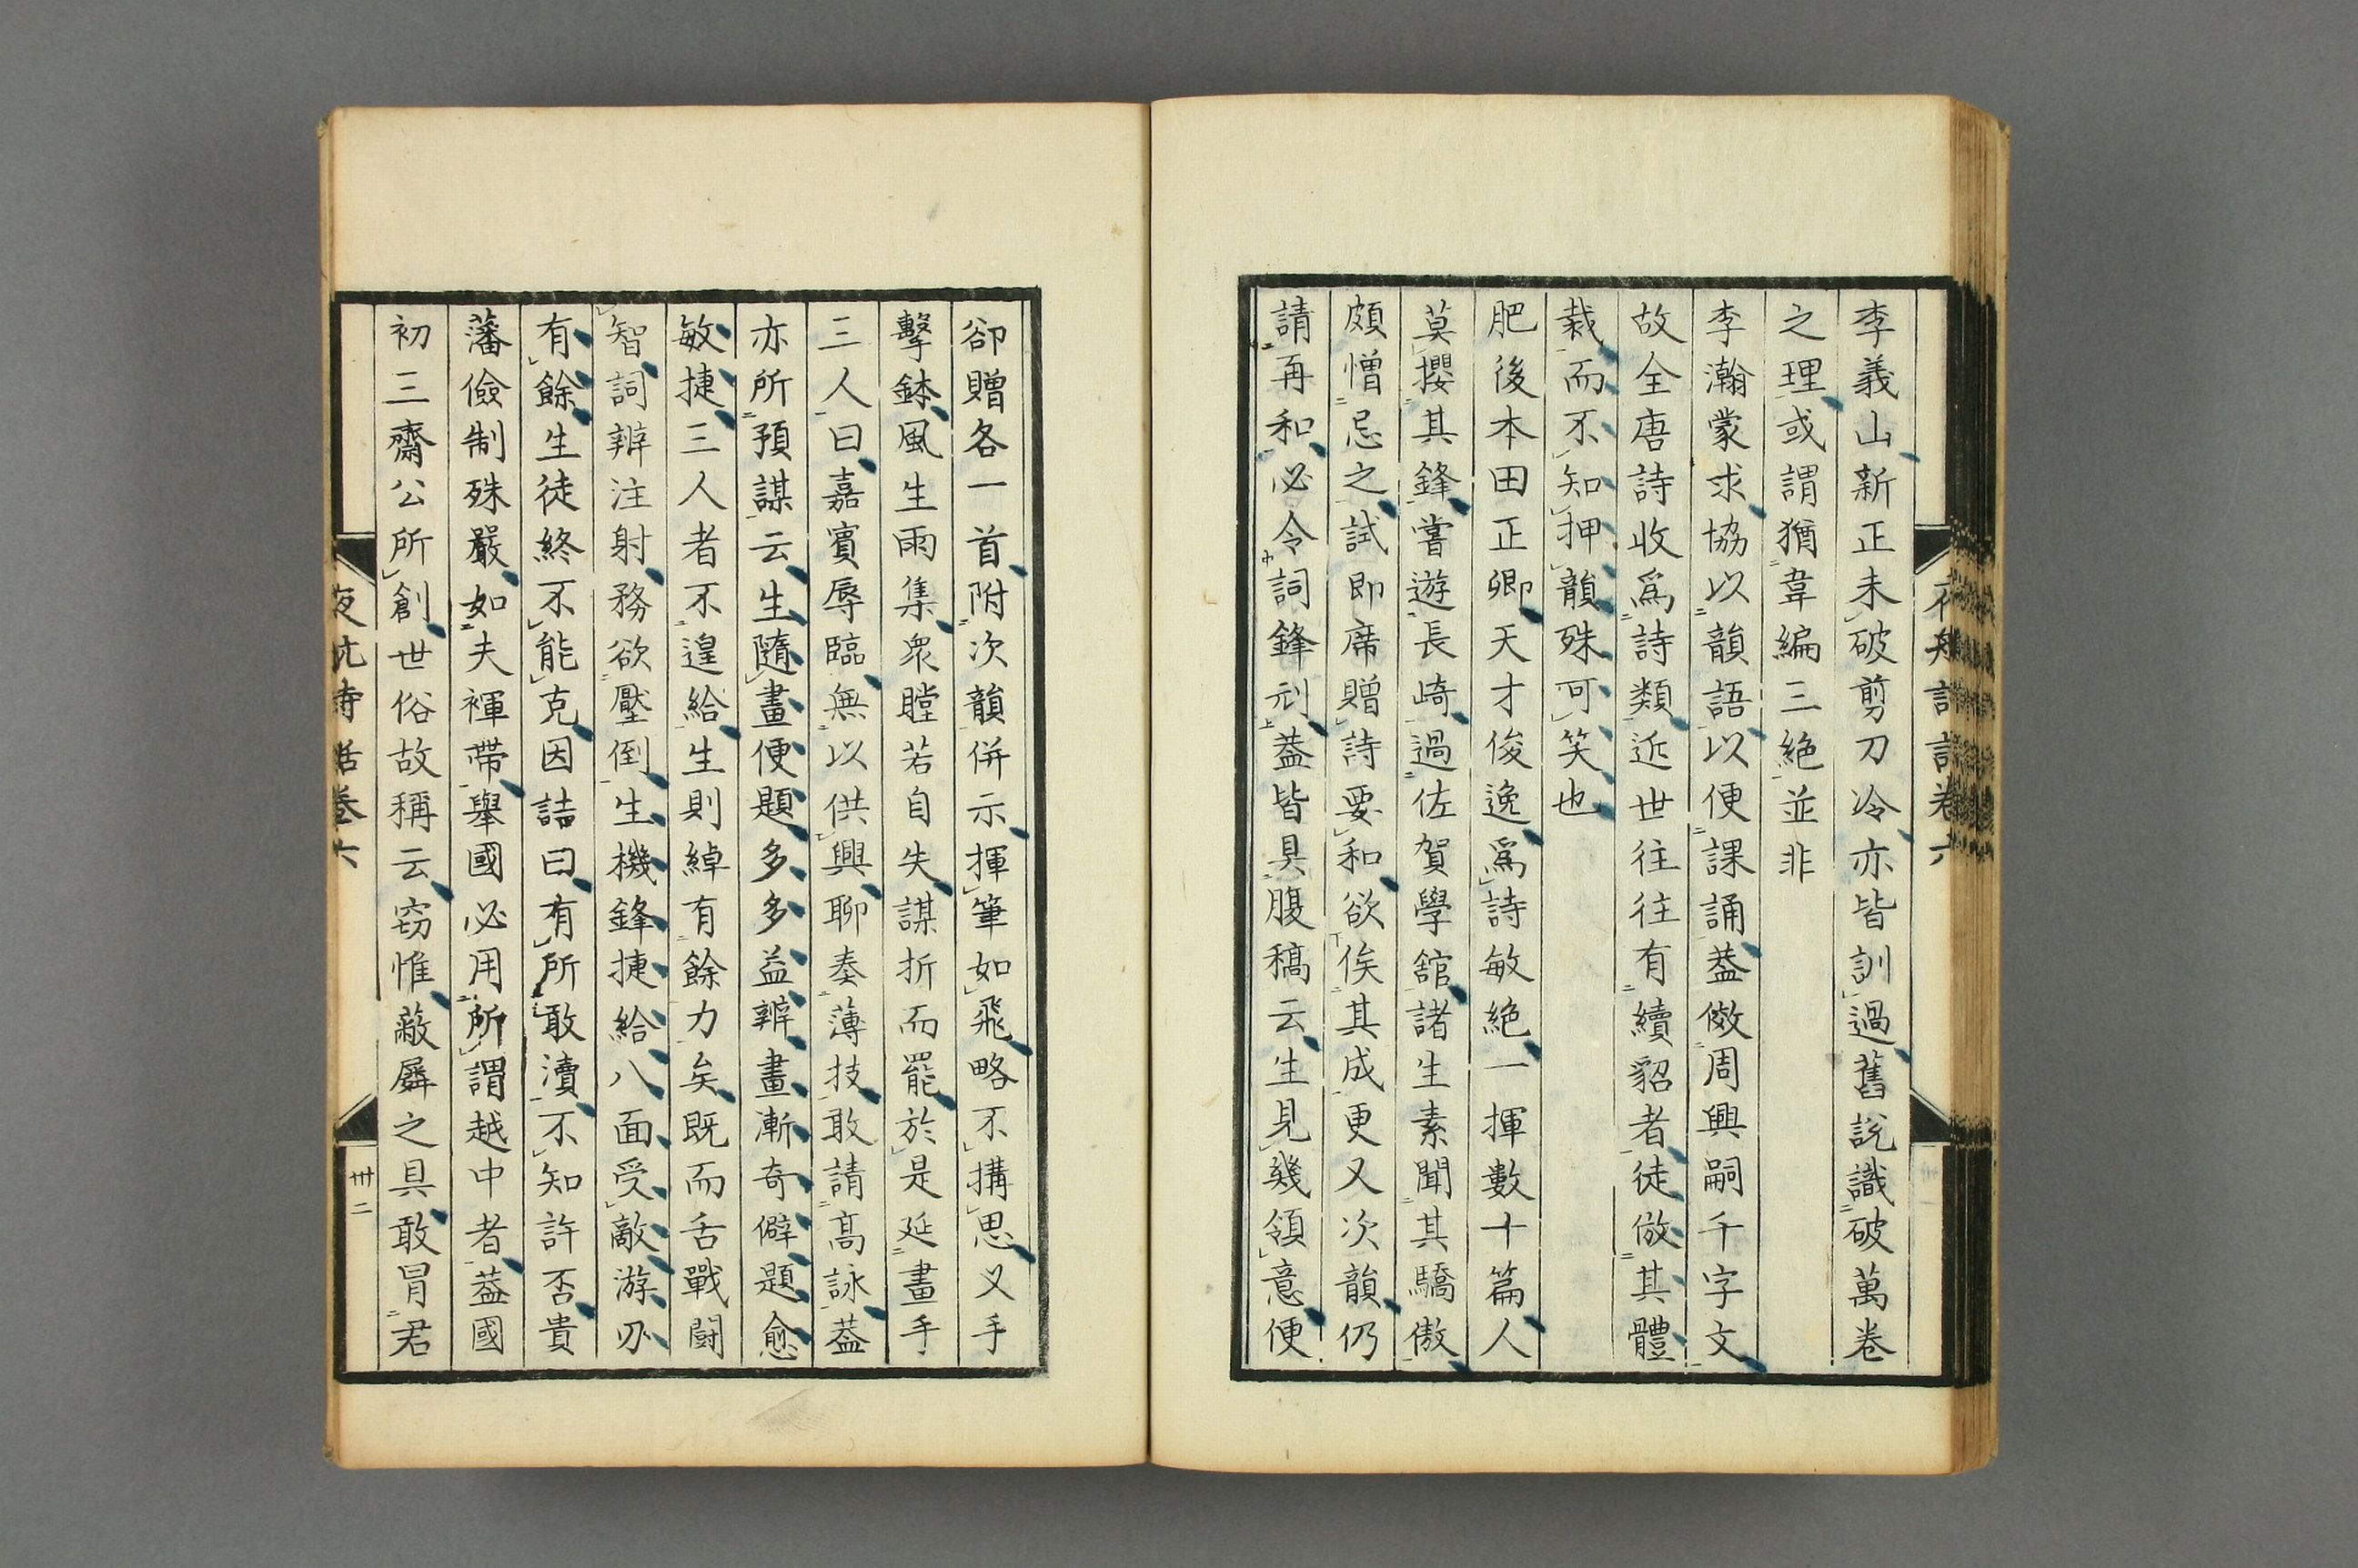 李義山新正未破剪刀冷亦皆訓過舊説識破萬卷
之理或謂猶韋編三絶並非
李瀚蒙求協以韻語以便課誦葢傚周興嗣千字文
故全唐詩收爲詩類近世往往有續貂者徒倣其體
裁而不知押韻殊可笑也
肥後本田正卿天才俊逸爲詩敏絶一揮數十篇人
莫攖其鋒嘗遊長崎過佐賀學舘諸生素聞其驕傲
頗憎忌之試即席贈詩要和欲俟其成更又次韻仍
請再和必令詞鋒刓葢皆具腹稿云生見幾領意便
卻贈各一首附次韻併示揮筆如飛略不搆思乂手
擊鉢風生雨集衆瞠若自失謀折而罷於是延畫手
三人曰嘉賓辱臨無以供興聊奏薄技敢請高詠葢
亦所預謀云生隨畫便題多多益辨畫漸奇僻題愈
敏捷三人者不遑給生則綽有餘力矣既而舌戰鬪
智詞辨注射務欲壓倒生機鋒捷給八面受敵游刃
有餘生徒終不能克因詰曰有所敢瀆不知許否貴
藩儉制殊嚴如夫褌帶擧國必用所謂越中者葢國
初三齋公所創世俗故稱云窃惟蔽屛之具敢冐君
夜航詩話卷六
卅二